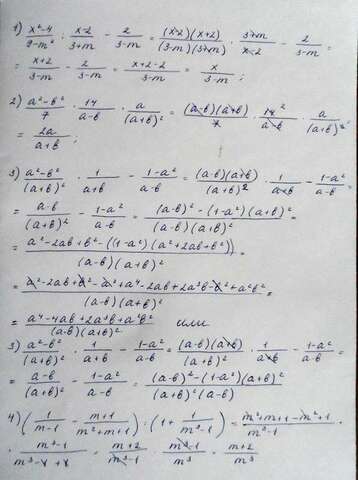 1) (x²-4)/(9-m²) : (x-2)/(3+m) - 2/(3-m) = ((x-2)(x+2))/((3-m)(3+m)) · (3+m)/(x-2) - 2/(3-m) =
= (x+2)/(3-m) - 2/(3-m) = (x+2-2)/(3-m) = x/(3-m);
2) (a²-b²)/7 · 14/(a-b) · a/(a+b)² = ((a-b)(a+b))/7 · 14²/(a-b) · a/(a+b)² =
= 2a/(a+b);
3) (a²-b²)/(a+b)² · 1/(a+b) - (1-a²)/(a-b) = ((a-b)(a+b))/(a+b)² · 1/(a+b) - (1-a²)/(a-b) =
= (a-b)/(a+b)² - (1-a²)/(a-b) = ((a-b)² - (1-a²)(a+b)²)/((a-b)(a+b)²) =
= (a²-2ab+b² - ((1-a²)(a²+2ab+b²)))/((a-b)(a+b)²) =
= (a²-2ab+b²-a²+a⁴-2ab+2a³b-b²+a²b²)/((a-b)(a+b)²) =
= (a⁴-4ab+2a³b+a²b²)/((a-b)(a+b)²) или
3) (a²-b²)/(a+b)² · 1/(a+b) - (1-a²)/(a-b) = ((a-b)(a+b))/(a+b)² · 1/(a+b) - (1-a²)/(a-b) =
= (a-b)/(a+b)² - (1-a²)/(a-b) = ((a-b)²-(1-a²)(a+b)²)/((a+b)²(a-b))
4) (1/(m-1) - (m+1)/(m²+m+1)) · (1 + 1/(m³-1)) = (m²+m+1-m²+1)/(m³-1) ·
: (m³-1)/(m³-1+1) = (m+2)/(m³-1) · (m³-1)/m³ = (m+2)/m³